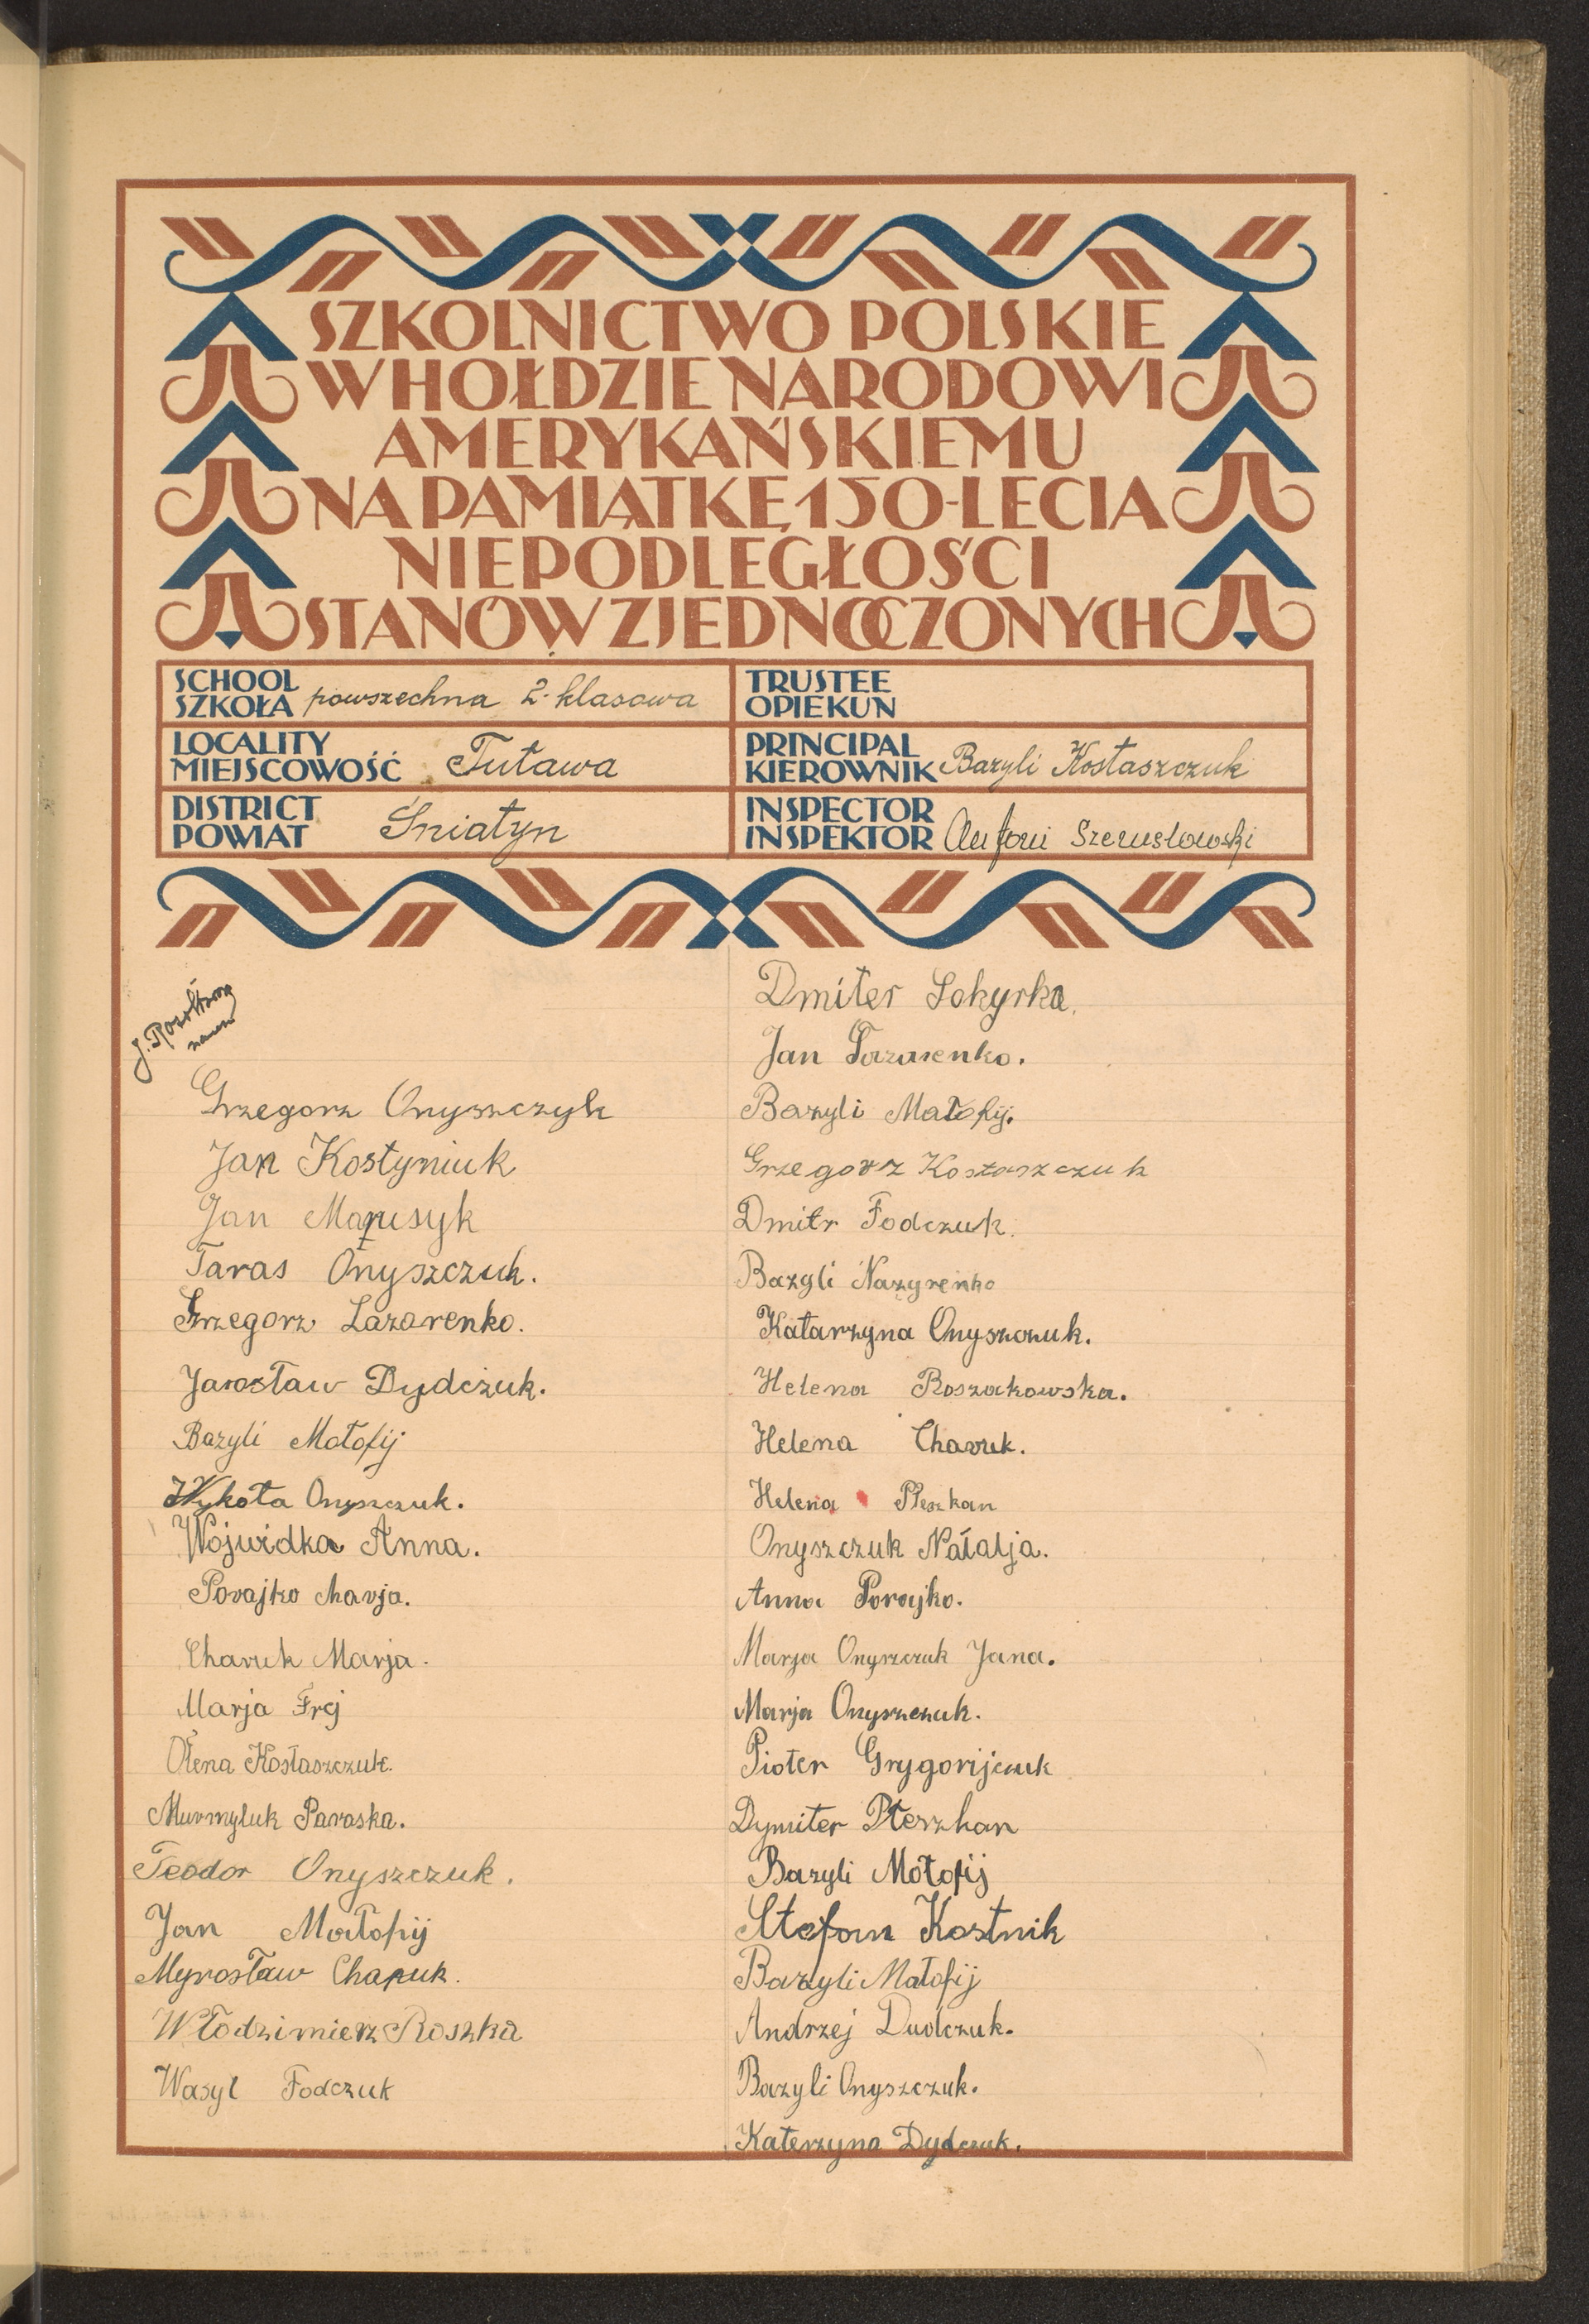 SZKOLNICTWO POLSKIE
W HOŁDZIE NARODOWI
AMERYKAŃSKIEMU
NA PAMIĄTKĘ 150-LECIA
NIEPODLEGŁOŚCI
STANÓW ZJEDNOCZONYCH
SCHOOL
SZKOŁA powszechna 2-klasowa
TRUSTEE
OPIEKUN
LOCALITY
MIEJSCOWOŚĆ Tuława
PRINCIPAL
KIEROWNIK Bazyli Kostaszczuk
DISTRICT
POWIAT Śniatyn
INSPECTOR
INSPEKTOR Antoni
Grzegorz Onyszczyk
Jan Kostyniuk
Jan Marusyk
Taras Onyszczuk.
Grzegorz Lazarenko.
Jarosław Dydczuk.
Bazyli Matofij
Mykoła Onyszczuk.
Wojwidka Anna.
Porajko Marja.
Charuk Marja.
Marja Frej
Ołena Kostaszczuk.
Murmyluk Paraska.
Teodor Onyszczuk.
Jan Matofij
Myrosław Charuk.
Włodzimierz Roszka
Wasyl Fodczuk
Dmiter Sokyrka.
Jan Lazarenko.
Bazyli Matofij.
Grzegorz Kostaszczuk
Dmitr Fodczuk.
Bazyli Nazyrenko
Katarzyna Onyszczuk.
Helena Roszakowska.
Helena Charuk.
Helena Płeszkan
Onyszczuk Natalja.
Anna Porajko.
Marja Onyszczuk Jana.
Marja Onyszczuk.
Pioter Grygorijczuk
Dymiter Płeszkan
Bazyli Motofij
Stefan Kostnik
Bazyli Matofij
Andrzej Dudczuk.
Bazyli Onyszczuk.
Katerzyna Dydczuk.